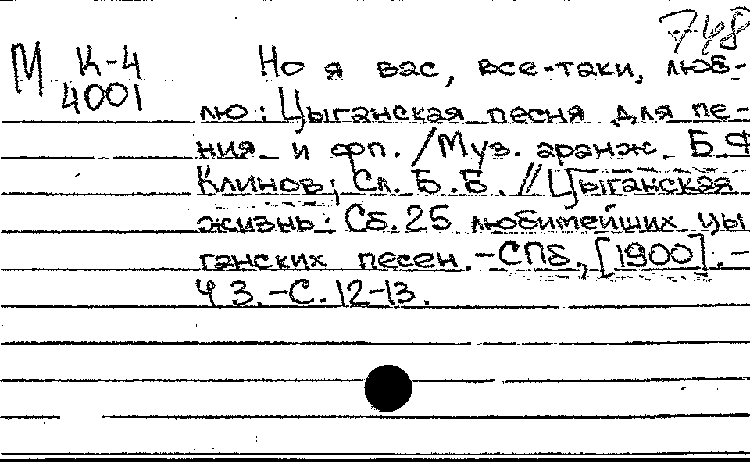 748
М К-4 Но я вас, все-таки, люб-
4001 лю: Цыганская песня для пе-
ния и фп. / Муз. аранж. Б.Ф
Клинов; Сл. Б.Б. // Цыганская
жизнь: Сб. 25 любитейших цы
ганских песен. - СПб, [1900]. -
Ч 3. - С. 12-13.